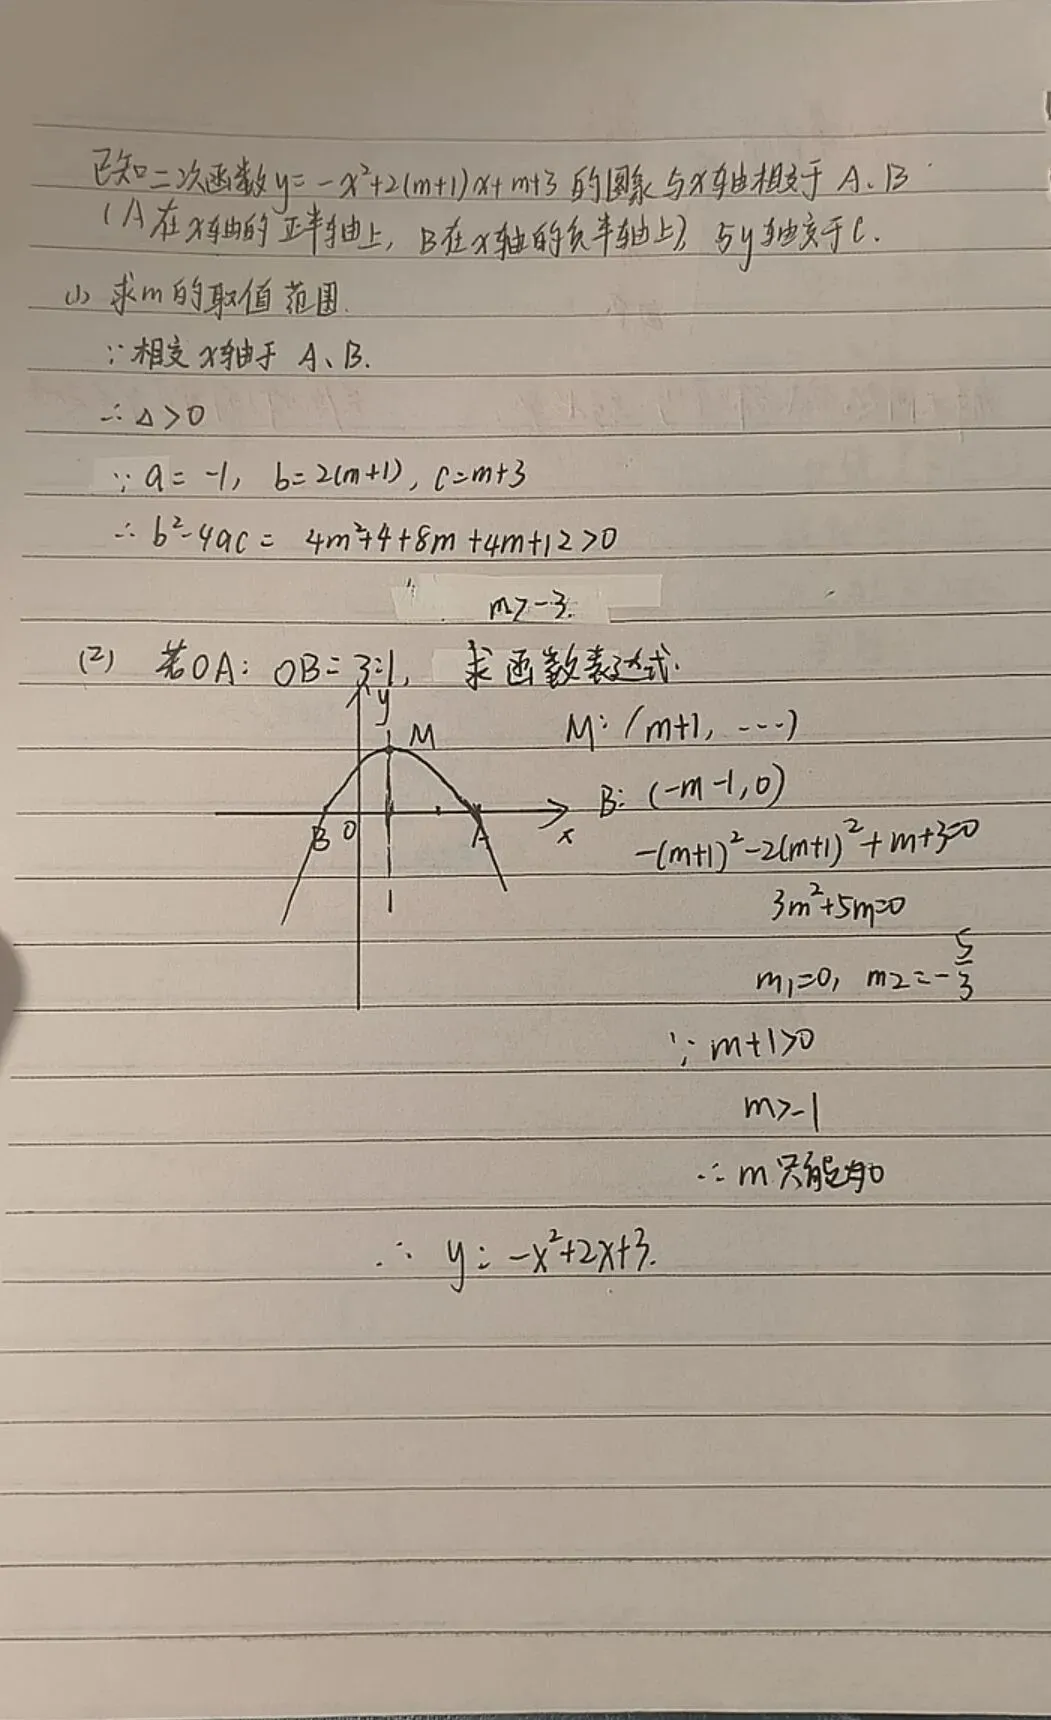 已知二次函数y=-x²+2(m+1)x+m+3的图象与x轴相交于A、B
(A在x轴的正半轴上,B在x轴的负半轴上),与y轴交于C.
(1) 求m的取值范围.
∵相交x轴于 A、B.
∴△>0
∵a=-1, b=2(m+1), c=m+3
∴b²-4ac= 4m²+4+8m+4m+12>0
m>-3.
(2) 若OA:OB=3:1, 求函数表达式.
y
M
B O A x
1
M:(m+1, ...)
B:(-m-1,0)
-(m+1)²-2(m+1)²+m+3=0
3m²+5m=0
m₁=0, m₂=-5/3
∵m+1>0
m>-1
∴m只能为0
∴y=-x²+2x+3.